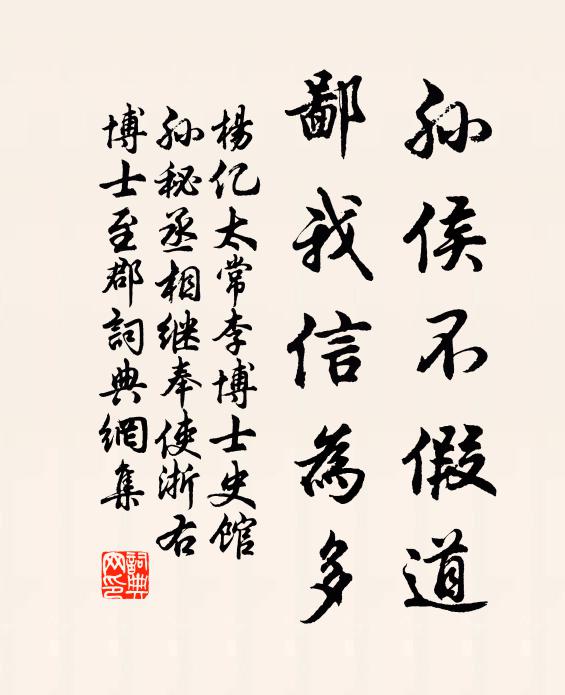 孙侯不假道
鄙我信為多
楊亿太常李博士史館
孙秘丞相继奉使浙右
博士至郡詞典網集
詞典网印